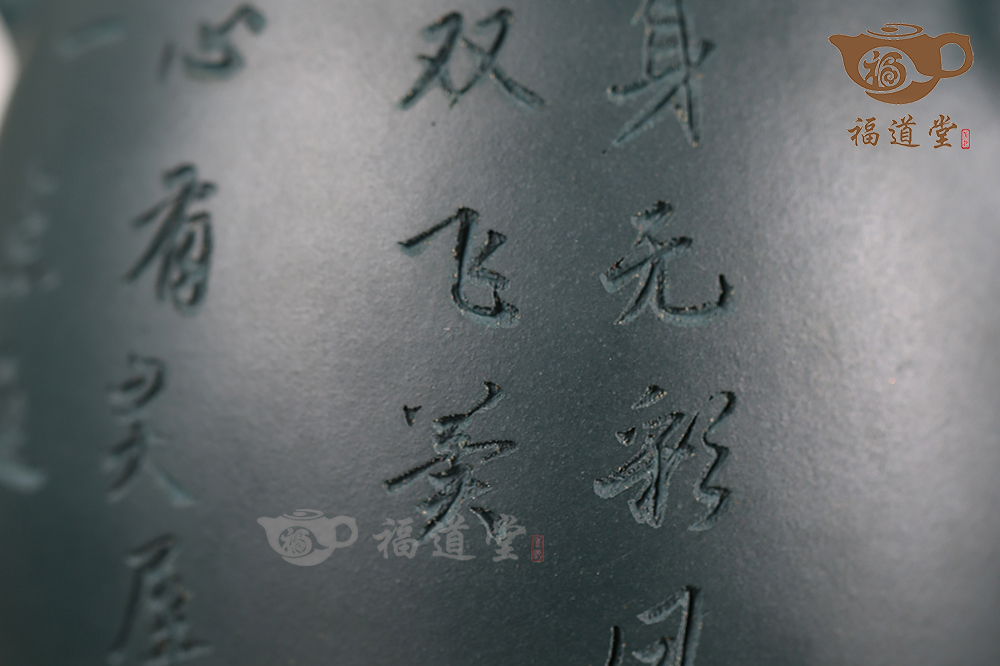 身无彩凤
双飞翼
心有灵犀
一
福
福道堂
福
福道堂